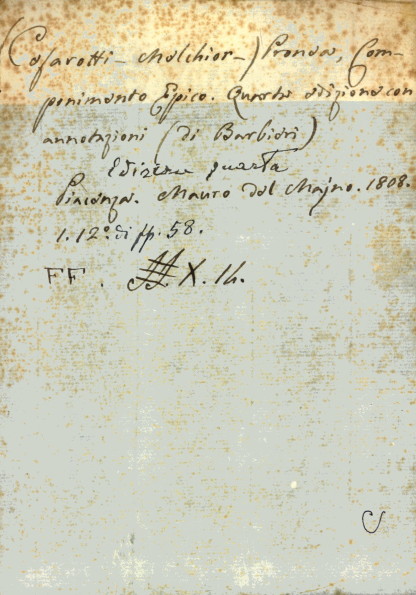 (Cesarotti - Melchior -) Pronea, Com-
ponimento Epico. Quarta edizione con
annotazioni (di Barbieri)
Edizione quarta
Piacenza. Mauro del Majno. 1808.
1. 12º. di pp. 58.
FF. X. 14.